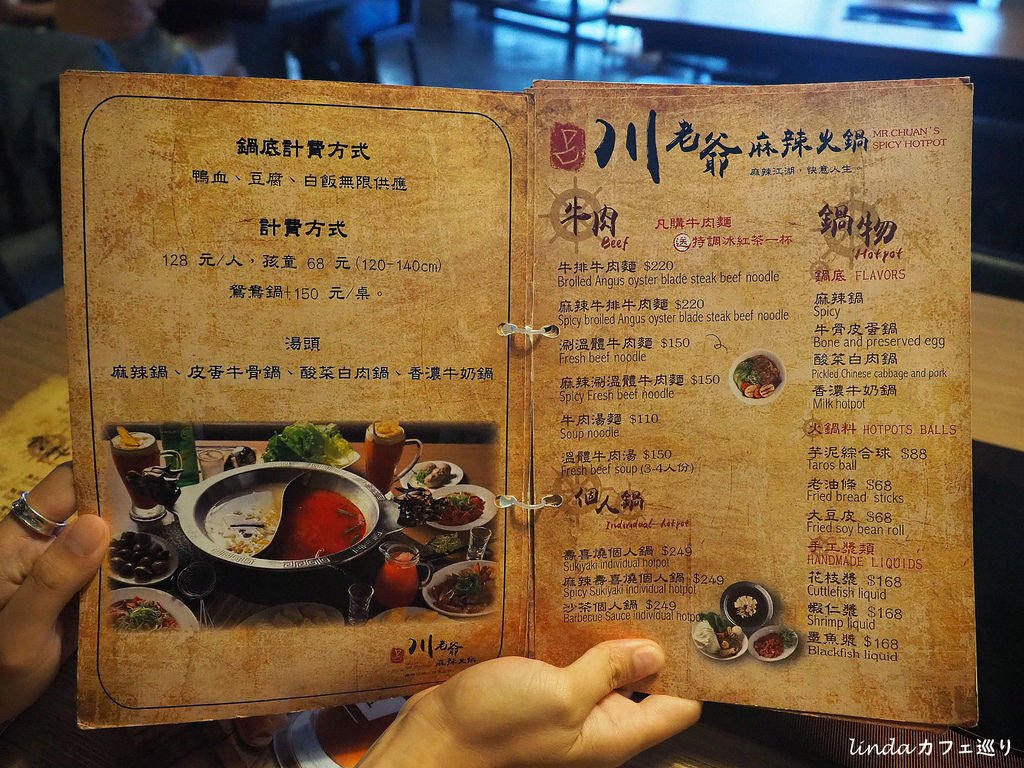 鍋底計費方式
鴨血、豆腐、白飯無限供應
計費方式
128 元/人，孩童 68 元(120-140cm)
鴛鴦鍋+150 元/桌。
湯頭
麻辣鍋、皮蛋牛骨鍋、酸菜白肉鍋、香濃牛奶鍋
川老爺
麻辣火鍋
川老爺麻辣火鍋
MR.CHUAN'S
SPICY HOTPOT
麻辣江湖，快意人生。
牛肉
Beef
凡購牛肉麵
送特調冰紅茶一杯
牛排牛肉麵 $220
Broiled Angus oyster blade steak beef noodle
麻辣牛排牛肉麵 $220
Spicy broiled Angus oyster blade steak beef noodle
涮溫體牛肉麵 $150
Fresh beef noodle
麻辣涮溫體牛肉麵 $150
Spicy Fresh beef noodle
牛肉湯麵 $110
Soup noodle
溫體牛肉湯 $150
Fresh beef soup (3-4人份)
個人鍋
Individual hotpot
壽喜燒個人鍋 $249
Sukiyaki individual hotpot
麻辣壽喜燒個人鍋 $249
Spicy Sukiyaki individual hotpot
沙茶個人鍋 $249
Barbecue Sauce individual hotpot
鍋物
Hotpot
鍋底 FLAVORS
麻辣鍋
Spicy
牛骨皮蛋鍋
Bone and preserved egg
酸菜白肉鍋
Pickled Chinese cabbage and pork
香濃牛奶鍋
Milk hotpot
火鍋料 HOTPOTS BALLS
芋泥綜合球 $88
Taros ball
老油條 $68
Fried bread sticks
大豆皮 $68
Fried soy bean roll
手工漿類
HANDMADE LIQUIDS
花枝漿 $168
Cuttlefish liquid
蝦仁漿 $168
Shrimp liquid
墨魚漿 $168
Blackfish liquid
lindaカフェ巡り